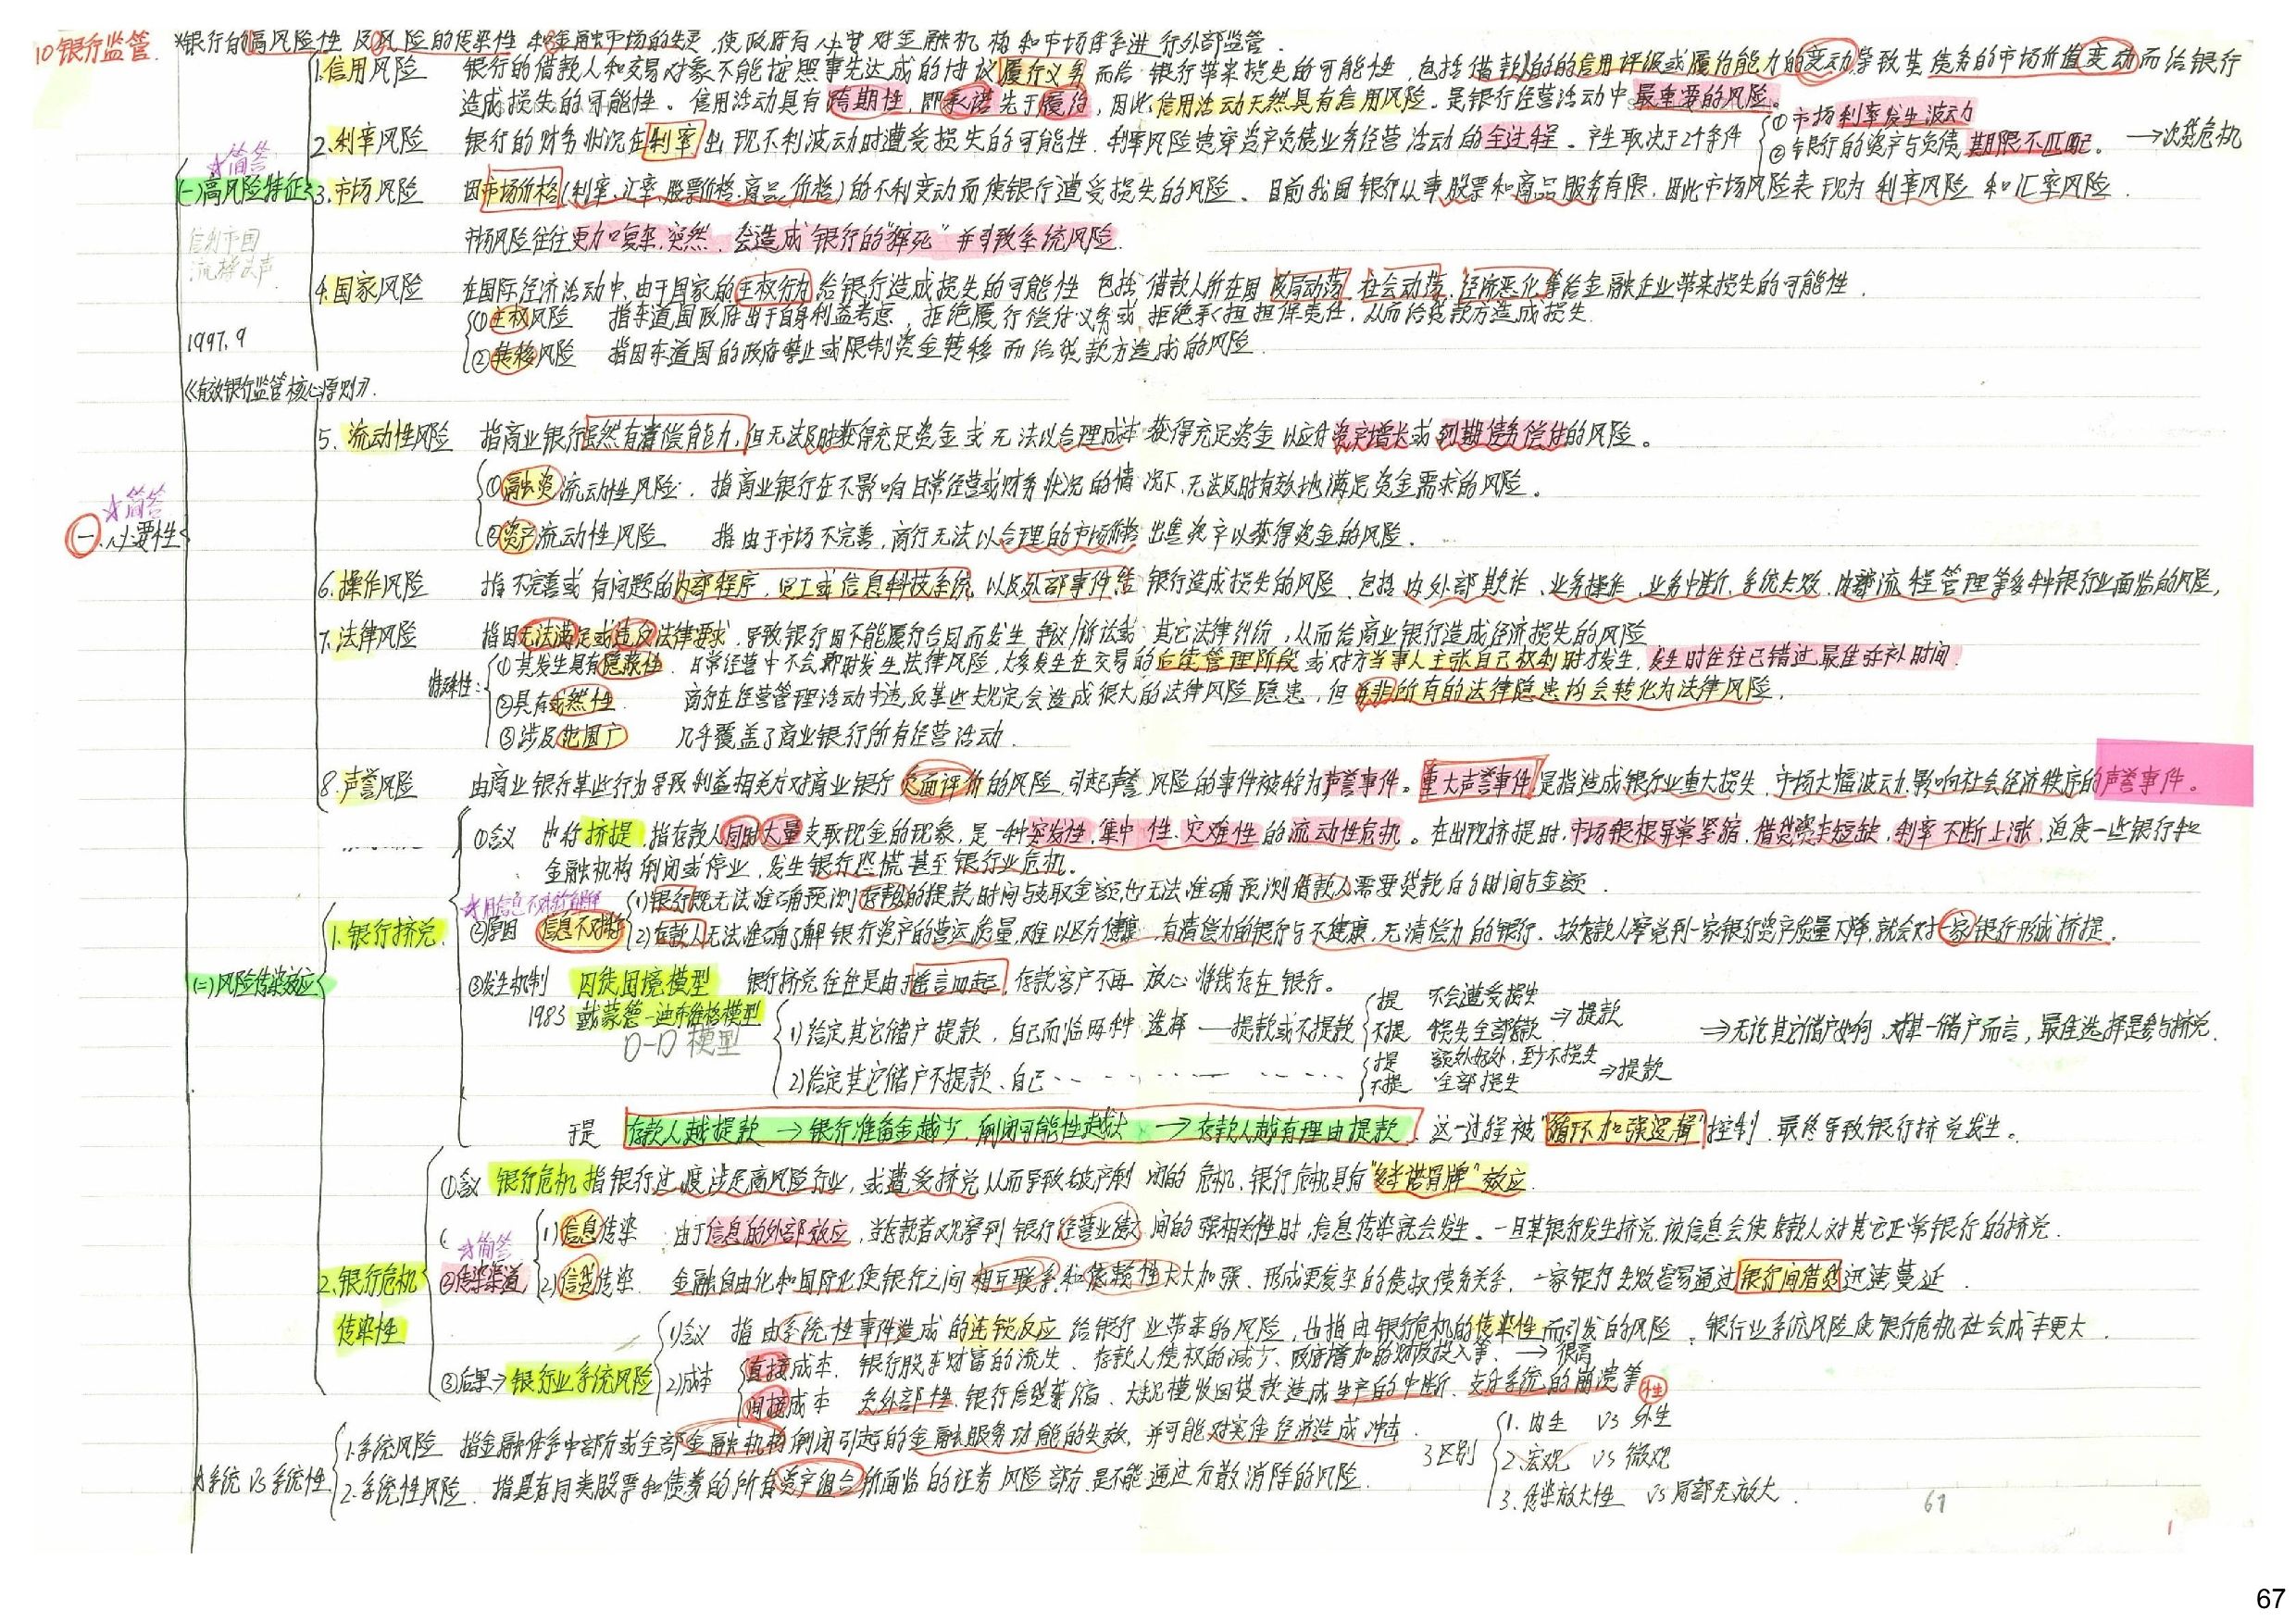 10 银行监管. *银行的高风险性及风险的传染性和金融市场的失灵,使政府有必要对金融机构和市场体系进行外部监管.
1.信用风险 银行的借款人和交易对象不能按照事先达成的协议履行义务而给银行带来损失的可能性,包括借款人的信用评级或履约能力的变动导致其债务的市场价值变动而给银行
造成损失的可能性。信用活动具有跨期性,即承诺先于履约,因此信用活动天然具有信用风险.是银行经营活动中最重要的风险。
2.利率风险 银行的财务状况在利率出现不利波动时遭受损失的可能性.利率风险贯穿资产负债业务经营活动的全过程。产生取决于2个条件
①市场利率发生波动
②银行的资产与负债期限不匹配。 →次贷危机
☆简答
(一)高风险特征
3.市场风险 因市场价格(利率、汇率、股票价格、商品价格)的不利变动而使银行遭受损失的风险。目前我国银行从事股票和商品服务有限,因此市场风险表现为利率风险和汇率风险.
市场风险往往更加复杂、突然,会造成银行的"猝死"并引致系统风险.
信利市国
流操法声
4.国家风险 在国际经济活动中,由于国家的主权行为给银行造成损失的可能性 包括借款人所在国政局动荡、社会动荡、经济恶化等给金融企业带来损失的可能性.
①主权风险 指东道国政府出于自身利益考虑,拒绝履行偿付义务或拒绝承担担保责任,从而给贷款方造成损失.
②转移风险 指因东道国的政府禁止或限制资金转移而给贷款方造成的风险.
1997.9
《有效银行监管核心原则》.
5.流动性风险 指商业银行虽然有清偿能力,但无法及时获得充足资金或无法以合理成本获得充足资金以应对资产增长或到期债务偿付的风险。
①融资流动性风险.指商业银行在不影响日常经营或财务状况的情况下,无法及时有效地满足资金需求的风险。
②资产流动性风险 指由于市场不完善,商行无法以合理的市场价格出售资产以获得资金的风险.
☆简答
一.必要性
6.操作风险 指不完善或有问题的内部程序,员工或信息科技系统以及外部事件给银行造成损失的风险.包括内外部欺诈、业务操作、业务中断、系统失败、内部流程管理等多种银行业面临的风险,
7.法律风险 指因无法满足或违反法律要求,导致银行因不能履行合同而发生争议/诉讼或其它法律纠纷,从而给商业银行造成经济损失的风险
特殊性:
①其发生具有隐蔽性.日常经营中不会即时发生法律风险,大多发生在交易的后续管理阶段或对方当事人主张自己权利时才发生,发生时往往已错过最佳弥补时间.
②具有或然性.商行在经营管理活动中违反某些规定会造成很大的法律风险隐患,但并非所有的法律隐患均会转化为法律风险.
③涉及范围广 几乎覆盖了商业银行所有经营活动.
8.声誉风险 由商业银行某些行为导致利益相关方对商业银行负面评价的风险,引起声誉风险的事件被称为声誉事件。重大声誉事件是指造成银行业重大损失、市场大幅波动、影响社会经济秩序的声誉事件。
①含义 也称挤提,指存款人同时大量支取现金的现象,是一种突发性,集中性,灾难性的流动性危机。在出现挤提时,市场银根异常紧缩,借贷资本短缺,利率不断上涨,迫使一些银行和
金融机构倒闭或停业,发生银行恐慌甚至银行业危机。
☆用信息不对称解释
1.银行挤兑
②原因 信息不对称
1)银行既无法准确预测存款的提款时间与支取金额,也无法准确预测借款人需要贷款的时间与金额.
2)存款人无法准确了解银行资产的营运质量,难以区分健康、有清偿力的银行与不健康,无清偿力的银行.故存款人察觉到一家银行资产质量下降,就会对一家银行形成挤提.
(二)风险传染效应
③发生机制 囚徒困境模型 银行挤兑往往是由于谣言而起,存款客户不再放心将钱存在银行。
1983 戴蒙德-迪布维格模型
D-D模型
1)给定其它储户提款,自己面临两种选择——提款或不提款
提 不会遭受损失
不提 损失全部存款
⇒提款
2)给定其它储户不提款、自己……
提 额外好处,至少不损失
不提 全部损失
⇒提款
⇒无论其它储户如何,对某一储户而言,最佳选择是参与挤兑.
于是 存款人越提款→银行准备金越少,倒闭可能性越大→存款人越有理由提款.这一过程被"循环加强逻辑"控制.最终导致银行挤兑发生。
①含义 银行危机指银行过度涉足高风险行业,或遭受挤兑从而导致破产倒闭的危机.银行危机具有"多米诺骨牌"效应.
☆简答
2.银行危机传染性
②传染渠道
1)信息传染 由于信息的外部效应,当存款者观察到银行经营业绩间的强相关性时,信息传染就会发生。一旦某银行发生挤兑,该信息会使存款人对其它正常银行的挤兑.
2)信贷传染 金融自由化和国际化使银行之间相互联系和依赖性大大加强.形成更复杂的债权债务关系.一家银行失败容易通过银行间借贷迅速蔓延.
③后果→银行业系统风险
1)含义 指由系统性事件造成的连锁反应给银行业带来的风险,也指由银行危机的传染性而引发的风险.银行业系统风险使银行危机社会成本更大.
2)成本
直接成本.银行股东财富的流失、存款人债权的减少、政府增加的财政投入等.→很高
间接成本 负外部性.银行信贷萎缩、大规模收回贷款造成生产的中断、支付系统的崩溃等
性
☆系统 VS 系统性
1.系统风险 指金融体系中部分或全部金融机构倒闭引起的金融服务功能的失效,并可能对实体经济造成冲击.
2.系统性风险.指具有同类股票和债券的所有资产组合所面临的证券风险部分.是不能通过分散消除的风险.
3区别
1.内生 VS 外生
2.宏观 VS 微观
3.传染放大性 VS 局部无放大.
61
1
67